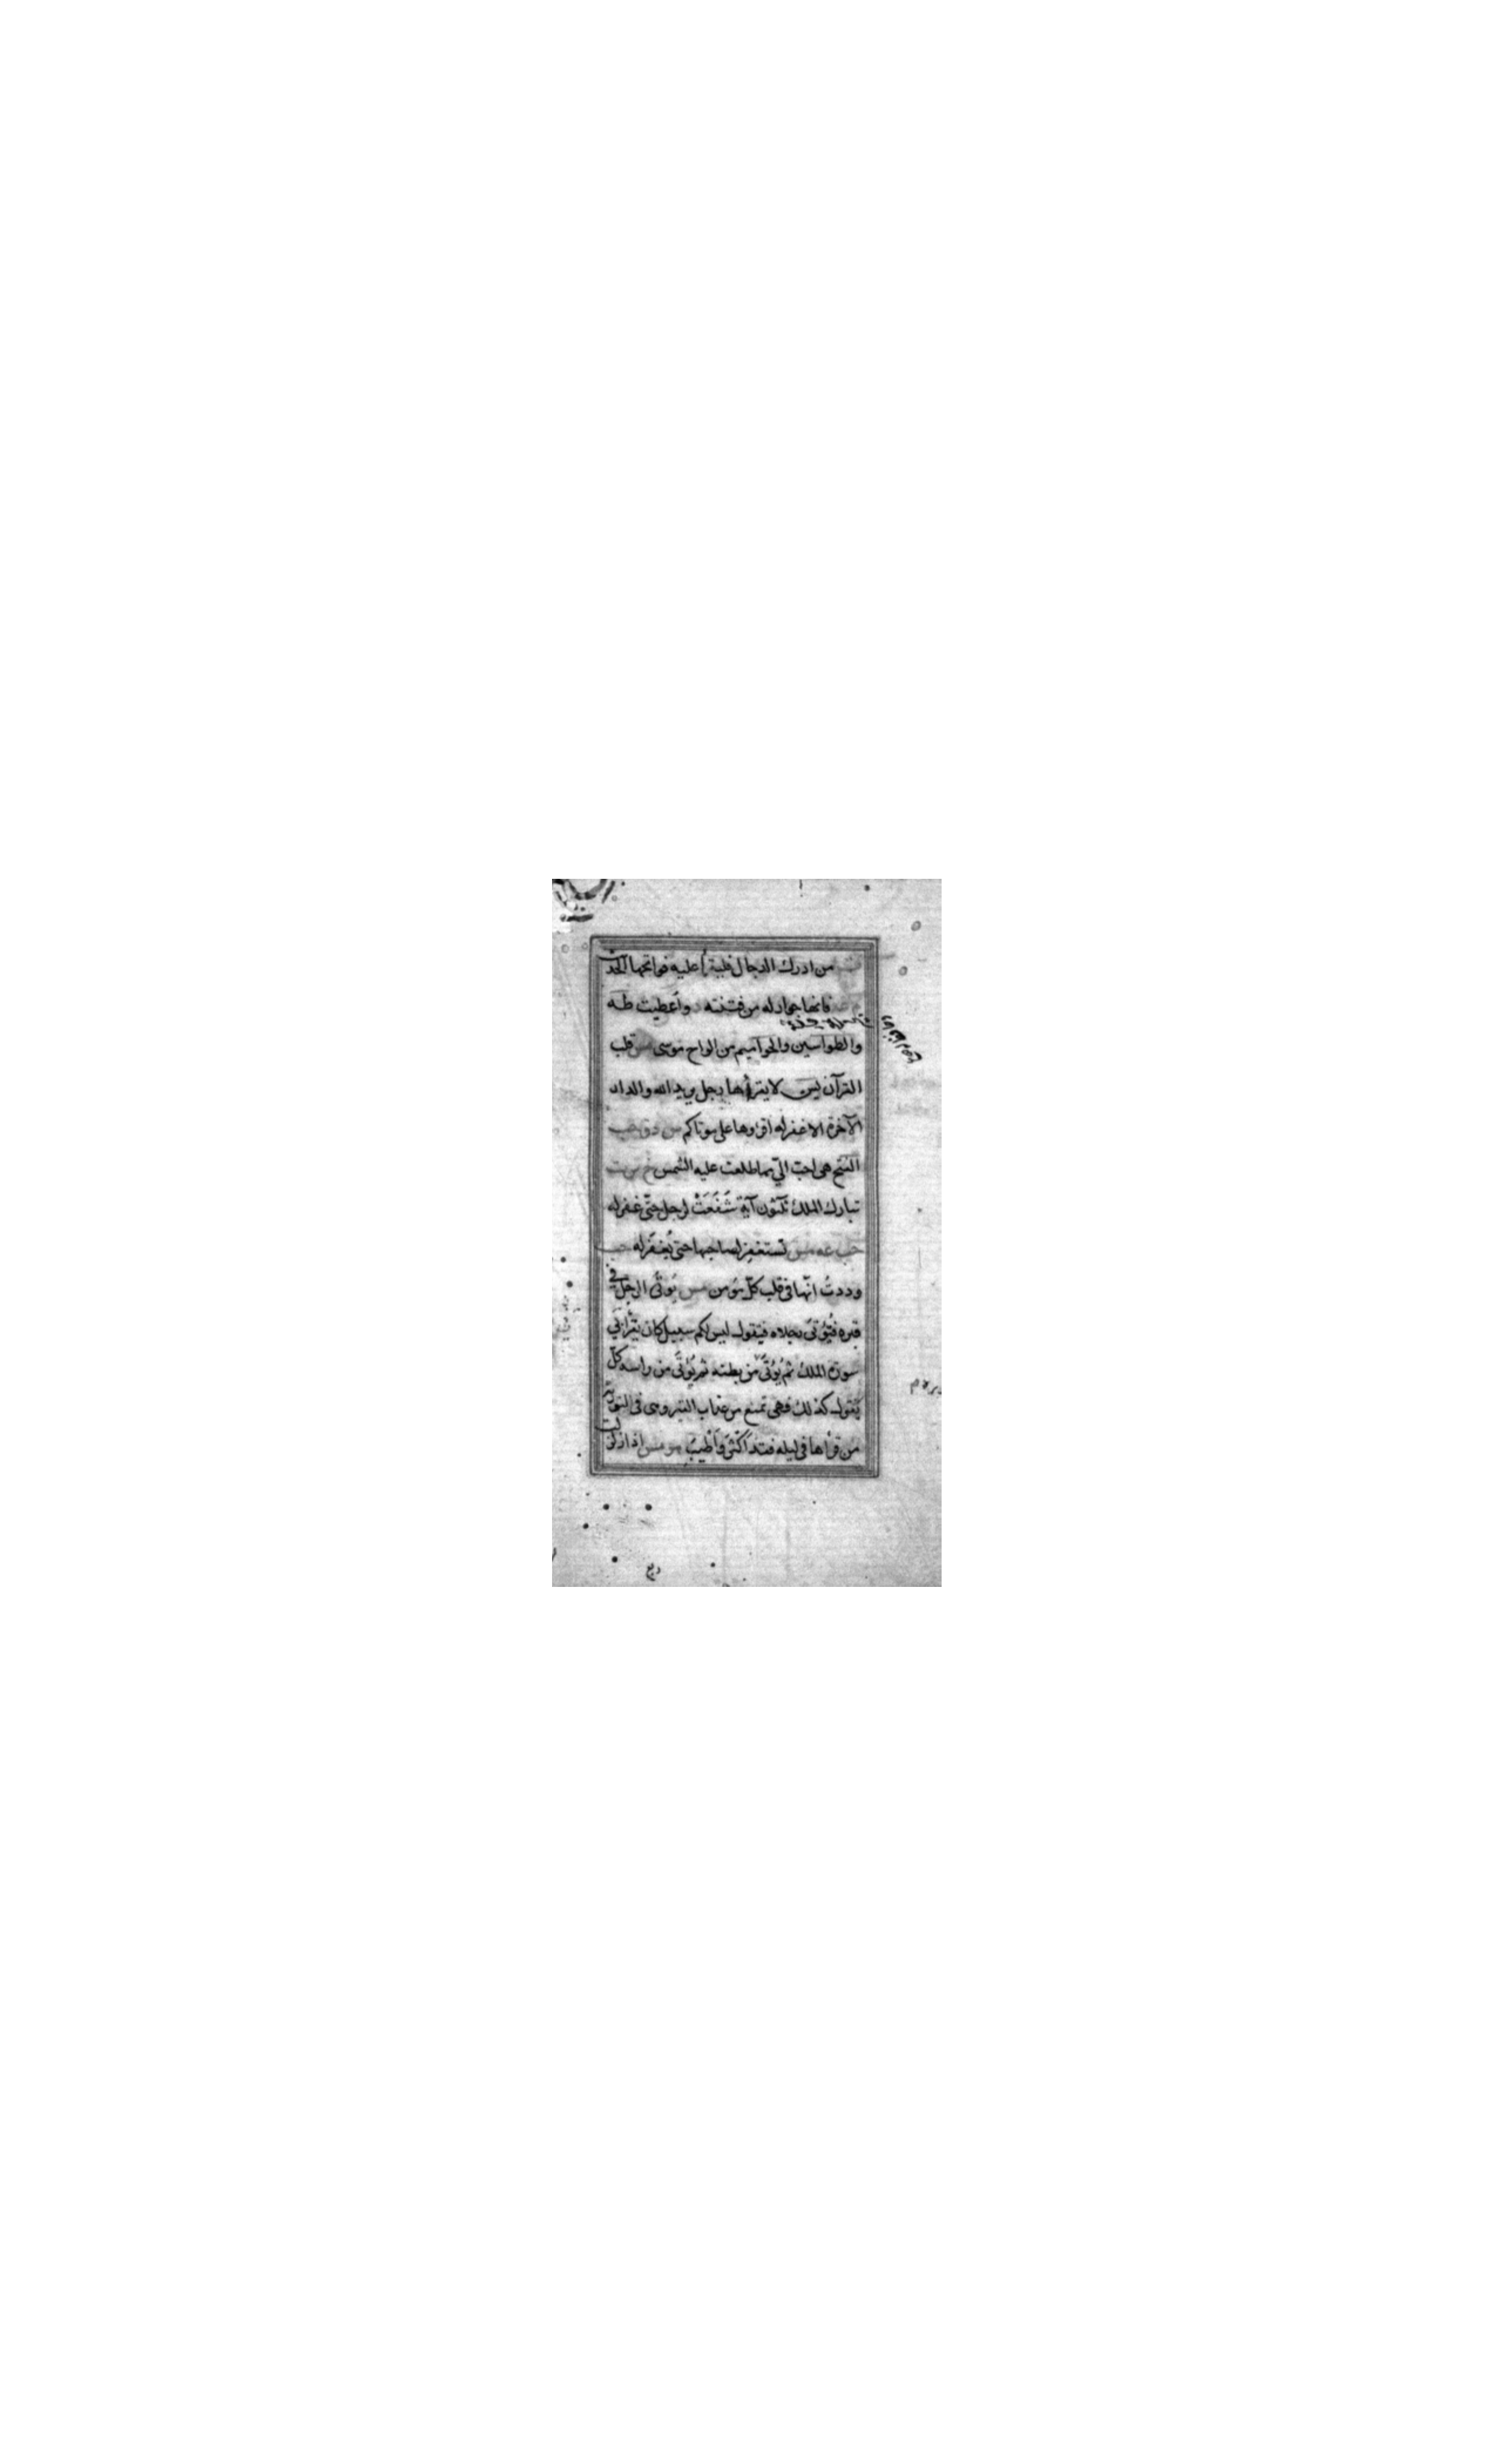 من ادرك الدجال فليقرأ عليه فواتحها الحديث
فانها جوار له من فتنته د واعطيت طه
والطواسين والحواميم من الواح موسى مس قلب
القرآن يس لا يقرأها رجل يريد الله والدار
الآخرة الا غفر له اقرؤها على موتاكم س د ق حب
الفتح هي احب اليّ مما طلعت عليه الشمس خ س ت
تبارك الملك ثلثون آية شَفَعَتْ لرجل حتّى غفر له
حب عه مس تستغفر لصاحبها حتى يُغفَر له حب
وددتُ انّها في قلب كلّ مؤمن مس يُؤتى الرجل في
قبره فيُؤتى رجلاه فيقول ليس لكم سبيل كان يقرأ بي
سورة الملك ثم يُؤتَى من بطنه ثم يُؤتَى من راسه كلّ
يقول كذلك فهي تمنع من عذاب القبر وهي في التورية
من قرأها في ليلة فقد اكثر واَطْيَبَ مو مس اذا زلزلت